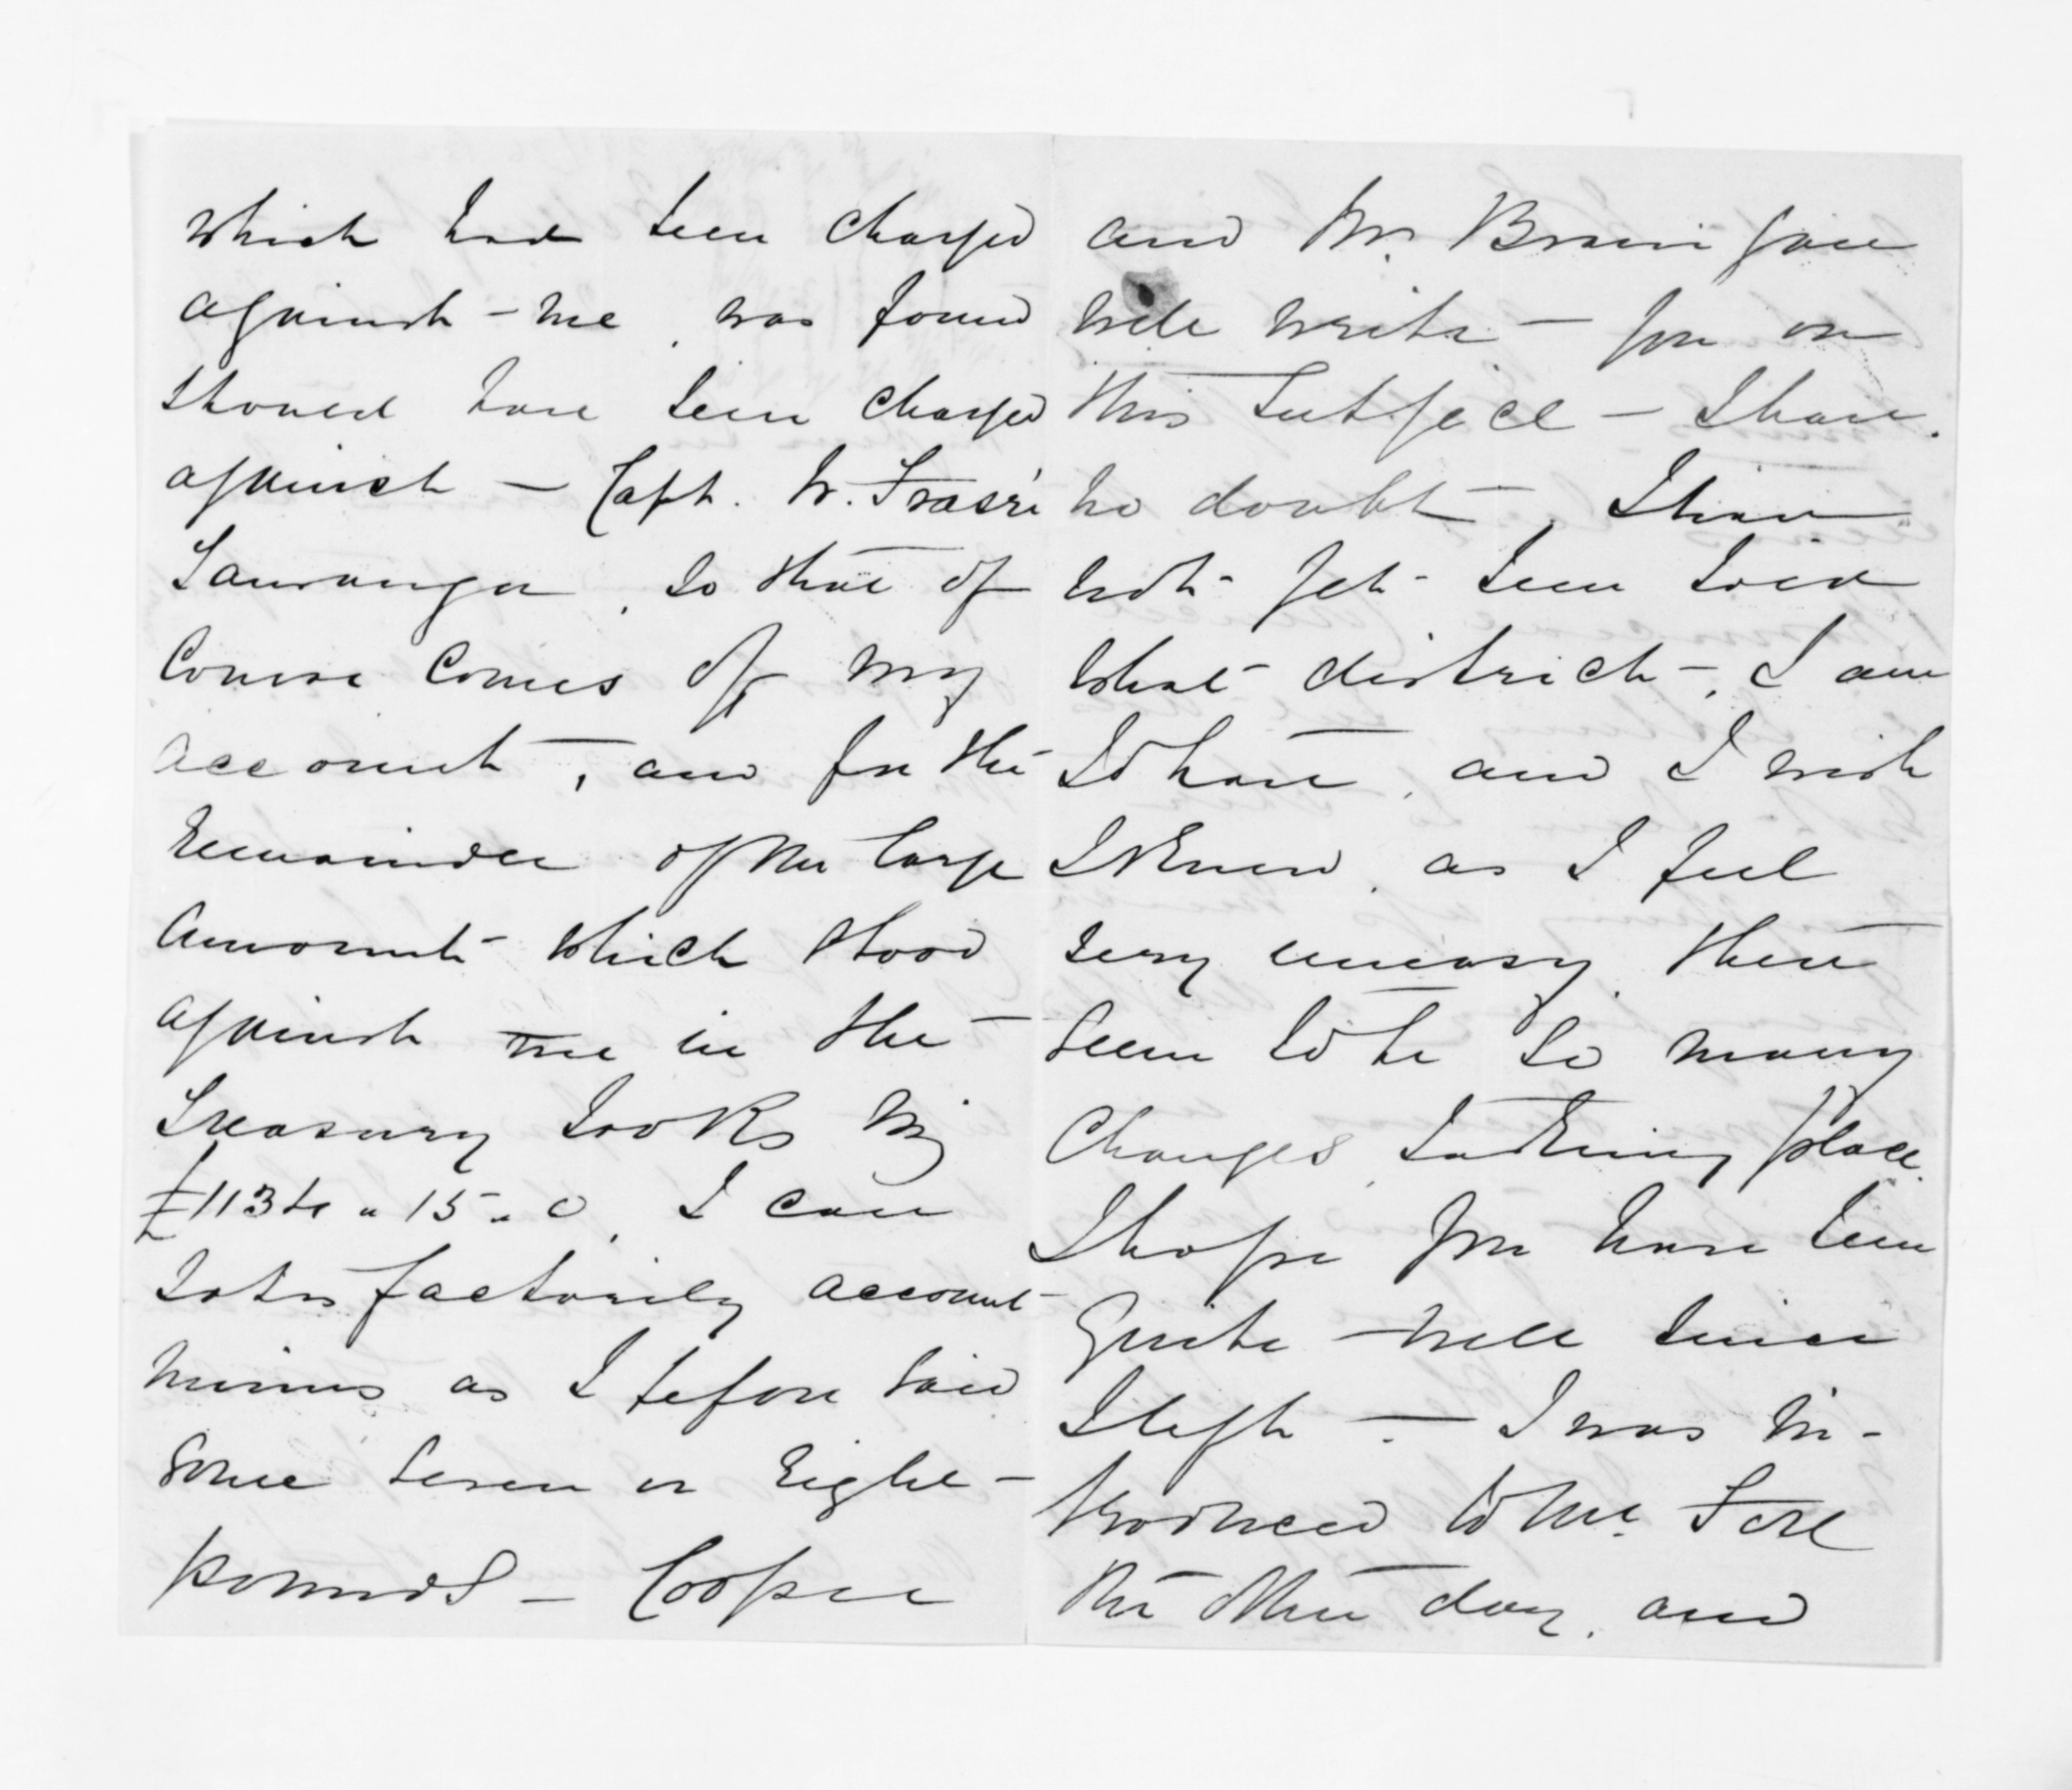 which had been charged
against me, was found
should have been charged
against – Capt. W. Fraser
Tauranga, so that of
course comes off my
account, and for the
remainder of the large
amount which stood
against me in the
Treasury books viz
£1134 " 15 " 0, I can
satisfactorily account
minus as I before said
some seven or eight
pounds – Cooper
and Mr.
will write you on
this subject – I have
no doubt, I have
not yet been told
what district, I am
to have, and I wish
I knew, as I feel
very uneasy, there
seem to be so many
changes taking place.
I hope you have been
quite well since
I left – I was in-
troduced to Mr. Fox
the other day, and